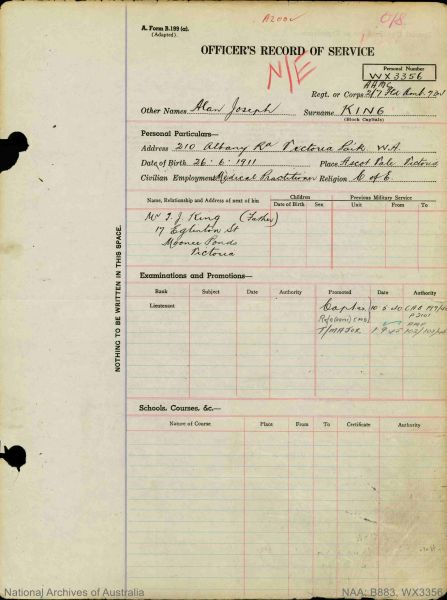 A. Form B.199 (a).
(Adapted).
A2002
O/S
OFFICER'S RECORD OF SERVICE
N/E
Personal Number
WX3356
AAMC
Regt. or Corps 2/7 Fld Amb. 7 Div
Other Names Alan Joseph Surname KING
(Block Capitals)
Personal Particulars—
Address 210 Albany Rd Victoria Park W.A.
Date of Birth 26. 6. 1911 Place Ascot Vale Victoria
Civilian Employment Medical Practitioner Religion C of E.
Name, Relationship and Address of next of kin Children Previous Military Service
Date of Birth Sex Unit From To
Mr J. J. King (Father)
17 Eglinton St
Moonee Ponds
Victoria
Examinations and Promotions—
Rank Subject Date Authority Promoted Date Authority
Lieutenant Captn 10 5 40
T/MAJOR 1 9 45
NOTHING TO BE WRITTEN IN THIS SPACE.
Schools, Courses, &c.—
Nature of Course Place From To Certificate Authority
National Archives of Australia NAA: B883, WX3356